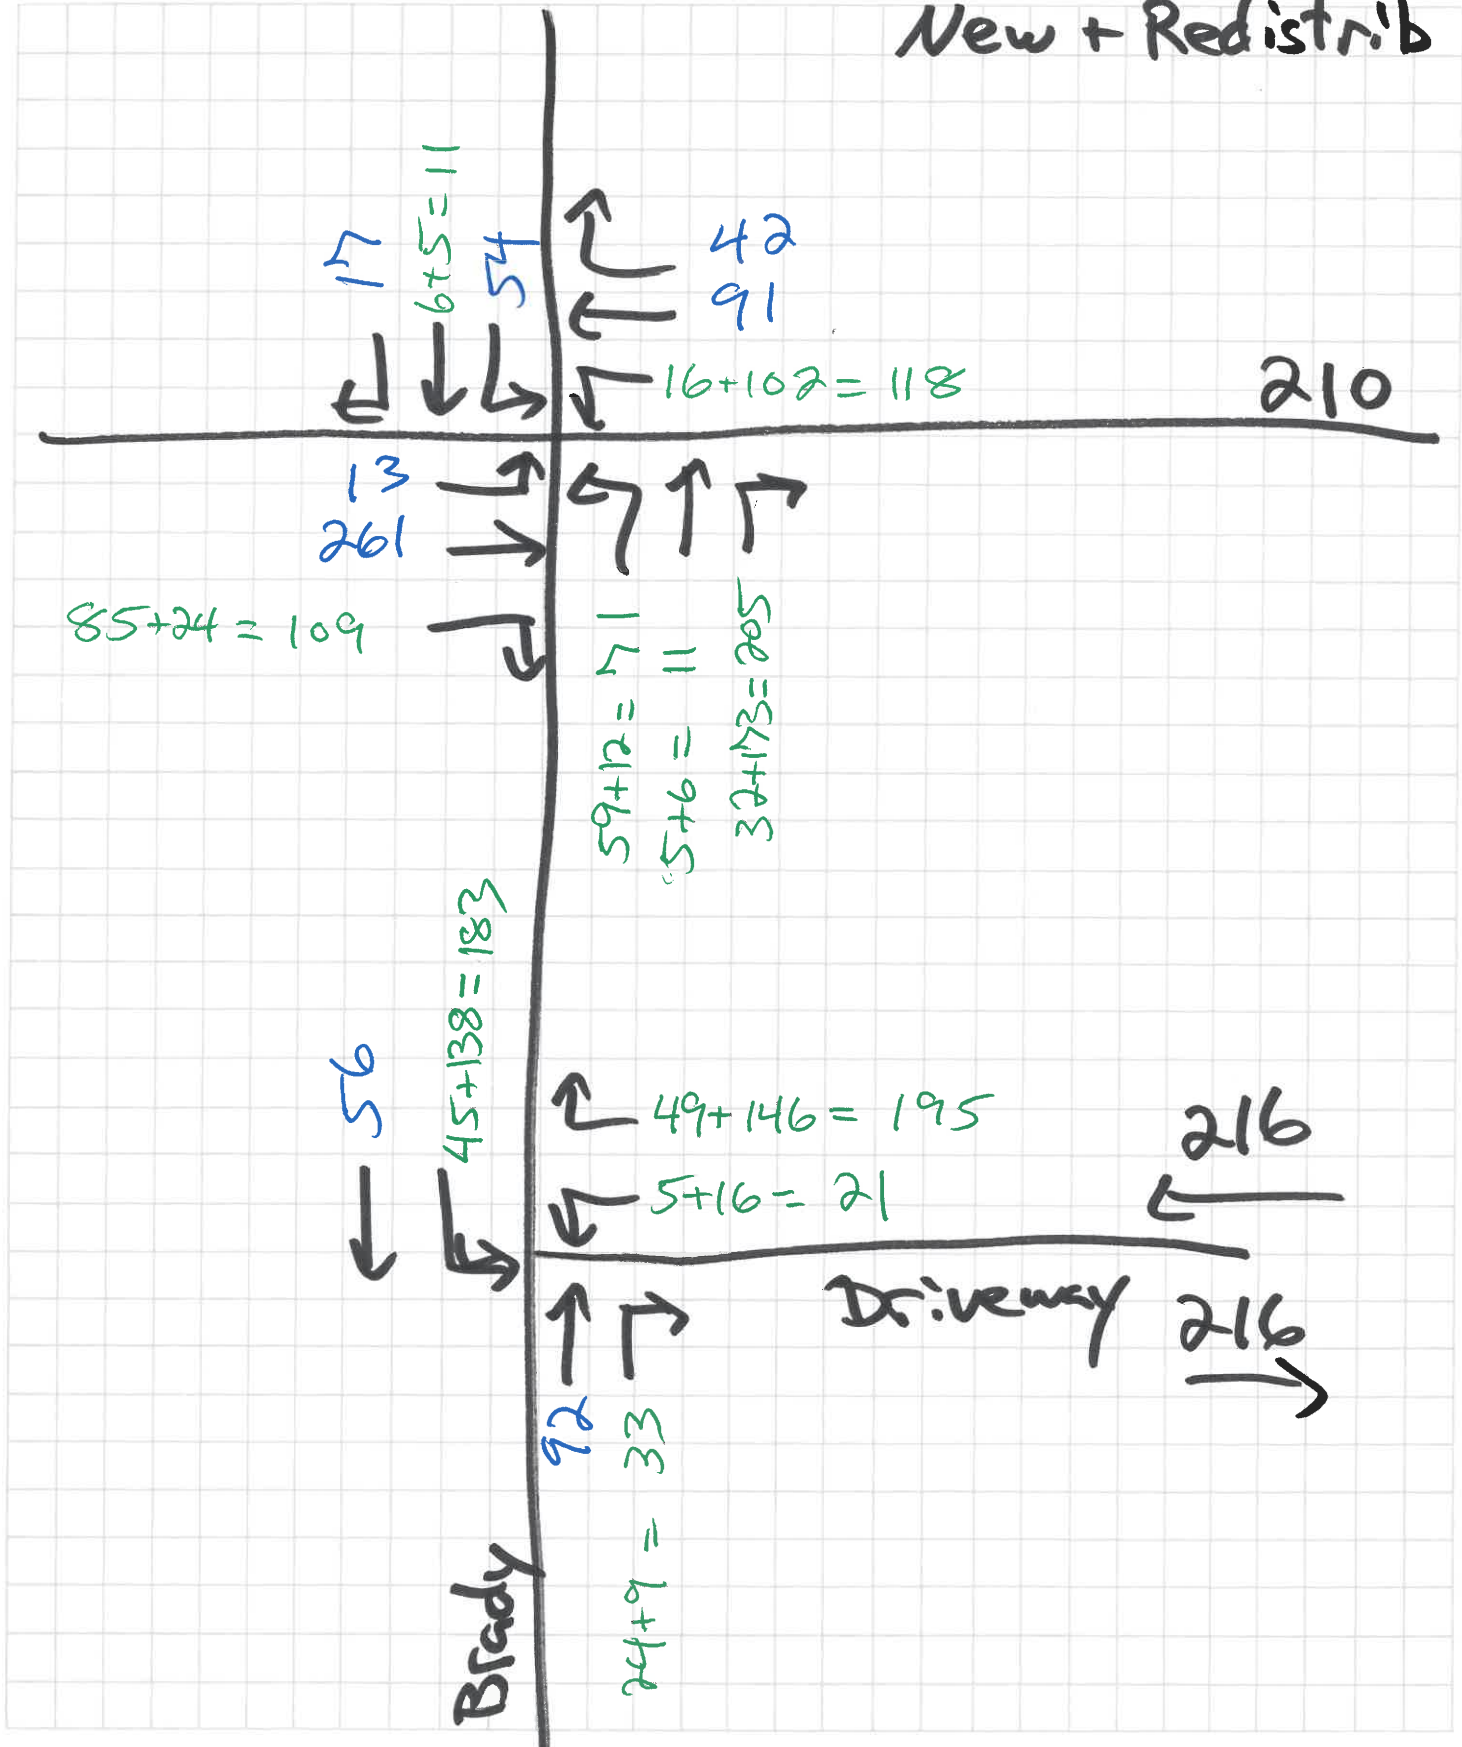 New + Redistrib
17
6+5=11
54
42
91
16+102=118
210
13
261
85+24=109
59+12=71
5+6=11
32+173=205
45+138=183
56
49+146=195
216
5+16=21
Driveway
216
92
24+9=33
Brady